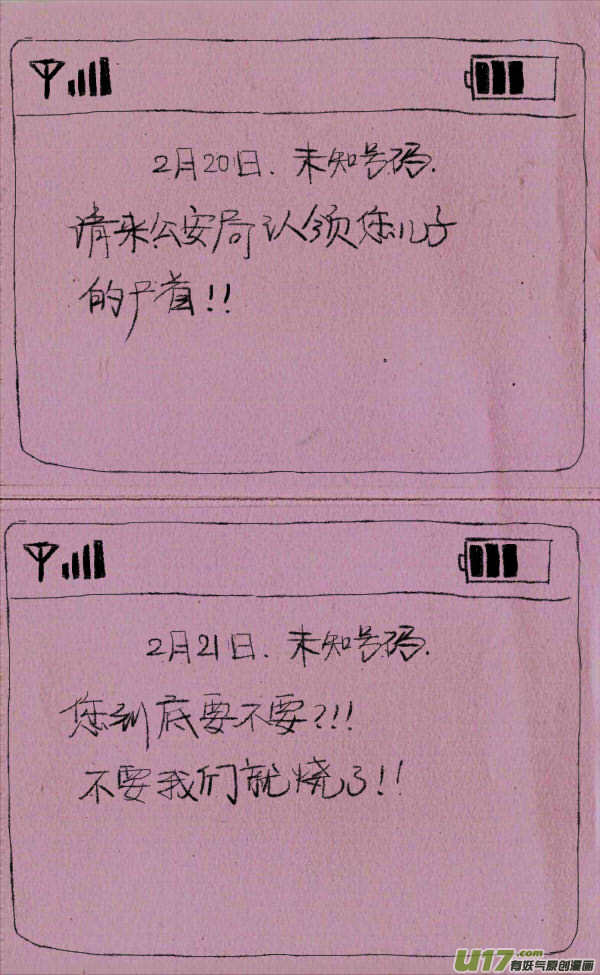 2月20日. 未知号码.
请来公安局认领您儿子
的尸首!!
2月21日. 未知号码.
您到底要不要?!!
不要我们就烧了!!
U17.com
有妖气原创漫画